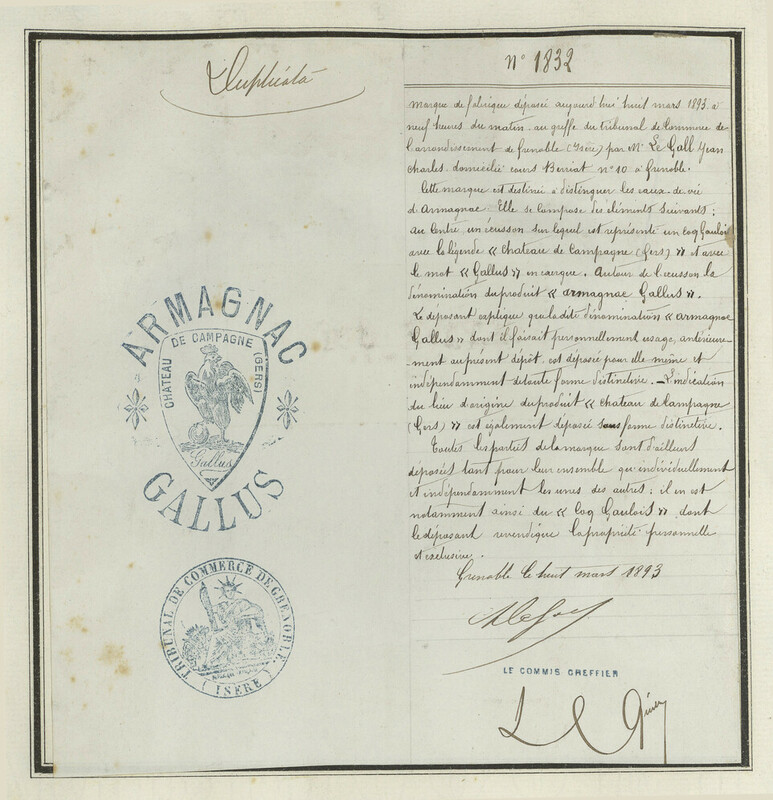 Duplicata
ARMAGNAC
CHATEAU DE CAMPAGNE (GERS)
Gallus
GALLUS
TRIBUNAL DE COMMERCE DE GRENOBLE.
(ISERE)
N° 1832
Marque de fabrique déposée aujourd'hui huit mars 1893, à
neuf heures du matin au greffe du tribunal de Commerce de
l'arrondissement de Grenoble (Isère) par Mr Le Gall Jean
Charles domicilié cours Berriat n° 10 à Grenoble.
Cette marque est destinée à distinguer les eaux-de-vie
d'Armagnac. Elle se compose des éléments suivants :
Au Centre un écusson sur lequel est représenté un Coq Gaulois
avec la légende « Chateau de Campagne (Gers) » et avec
le mot « Gallus » en exergue. Autour de l'écusson la
dénomination du produit « armagnac Gallus ».
Le déposant explique que ladite dénomination « armagnac
Gallus » dont il faisait personnellement usage, antérieure-
ment au présent dépôt est déposée pour elle même et
indépendamment de toute forme distinctive. - L'indication
du lieu d'origine du produit « Chateau de Campagne
(Gers) » est également déposée sous forme distinctive.
Toutes les parties de la marque sont d'ailleurs
déposées tant pour leur ensemble qu'individuellement
et indépendamment les unes des autres ; il en est
notamment ainsi du « Coq Gaulois » dont
le déposant revendique la propriété personnelle
et exclusive.
Grenoble le huit mars 1893
LE COMMIS GREFFIER